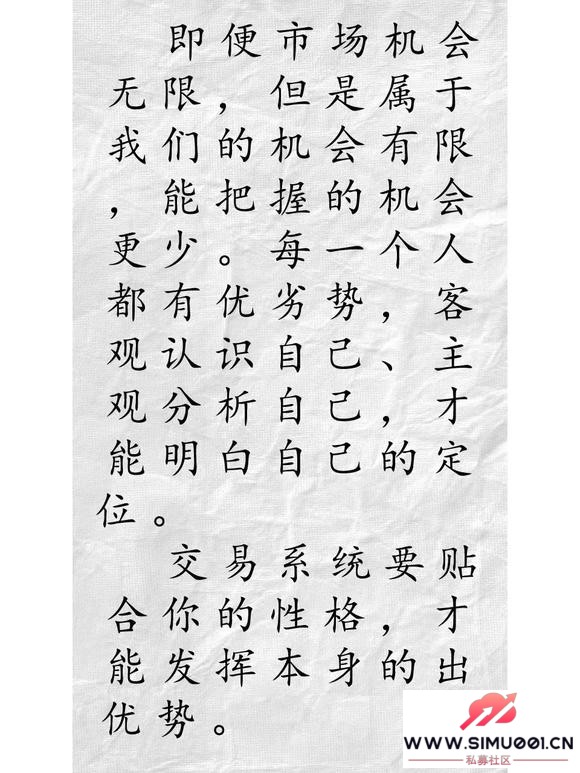 即便市场机会
无限，但是属于
我们的机会有限
，能把握的机会
更少。每一个人
都有优劣势，客
观认识自己、主
观分析自己，才
能明白自己的定
位。
交易系统要贴
合你的性格，才
能发挥本身的出
优势。
WWW.SIMU001.CN
私募社区